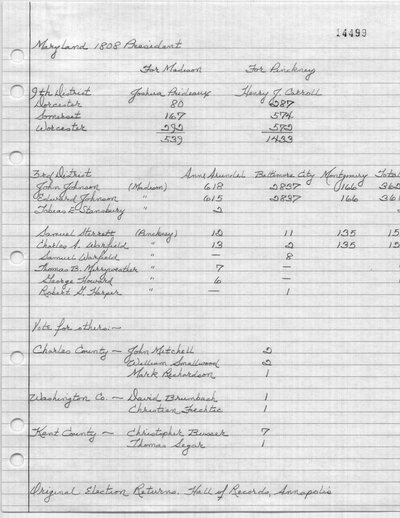 14499
Maryland 1808 President
For Madison For Pinckney
9th District Joshua Prideaux Henry J. Carroll
Dorcester 80 287
Somerset 167 574
Worcester 292 572
539 1433
3rd District Anne Arundel Baltimore City Montgomery Total
John Johnson (Madison) 618 2837 166 362
Edward Johnson " 615 2837 166 361
Tobias E Stansbury " 2
Samuel Sterrett (Pinckney) 12 11 135 15
Charles A. Warfield " 13 2 135 15
Samuel Warfield " — 8
Thomas B. Merryweather " 7 —
George Howard " 6 —
Robert G. Harper " — 1
Vote for others:—
Charles County — John Mitchell 2
William Smallwood 2
Mark Richardson 1
Washington Co. — David Brumbach 1
Christian Fechtic 1
Kent County — Christopher Busser 7
Thomas Segar 1
Original Election Returns. Hall of Records, Annapolis